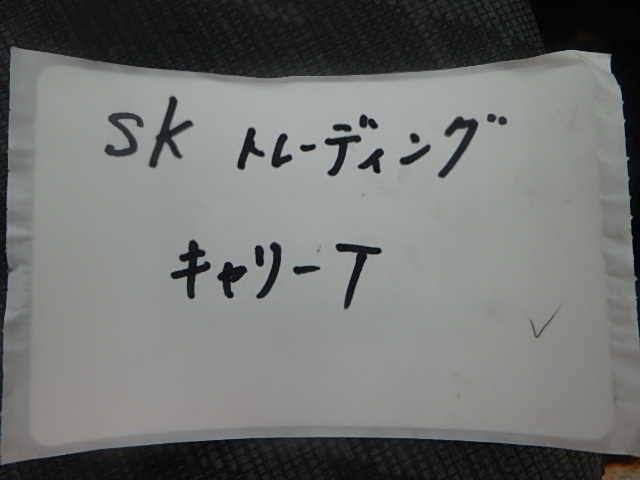 SK トレーディング
キャリーT